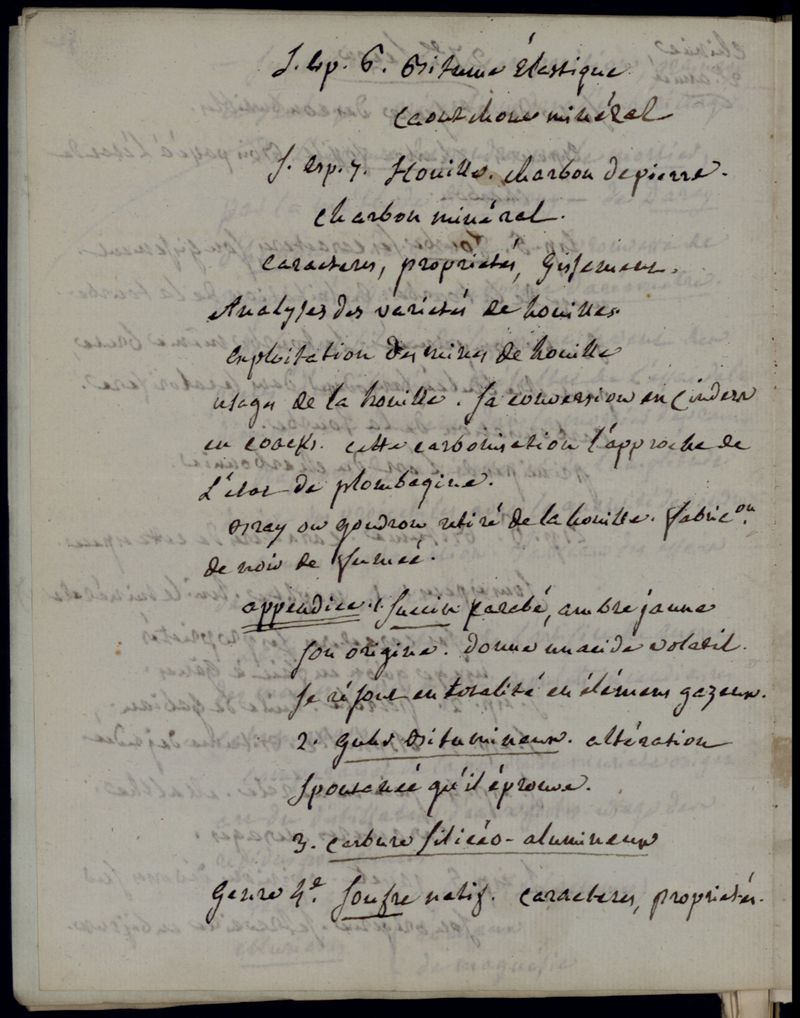 S. Esp. 6. Bitume élastique
caoutchouc minéral
S. Esp. 7. Houille. charbon de pierre.
charbon minéral.
caracteres, propriétés, Gissement.
Analyses des variétés de houilles
Exploitation des mines de houille
usages de la houille. Sa conversion en Cinders
en coacks. cette carbonisation l'approche de
L'état de plombagine.
Bray ou goudron retiré de la houille. fabric.on
de noir de fumée.
appendice 1. Succin karabé, ambre jaune
Son origine. donne un acide volatil.
Se résout en totalité en élémens gazeux.
2. Bitumineux. altération
Spontanée qu'il éprouve.
3. carbure Siliceo-alumineux
Genre 4.e Soufre natif. caracteres, propriétés.